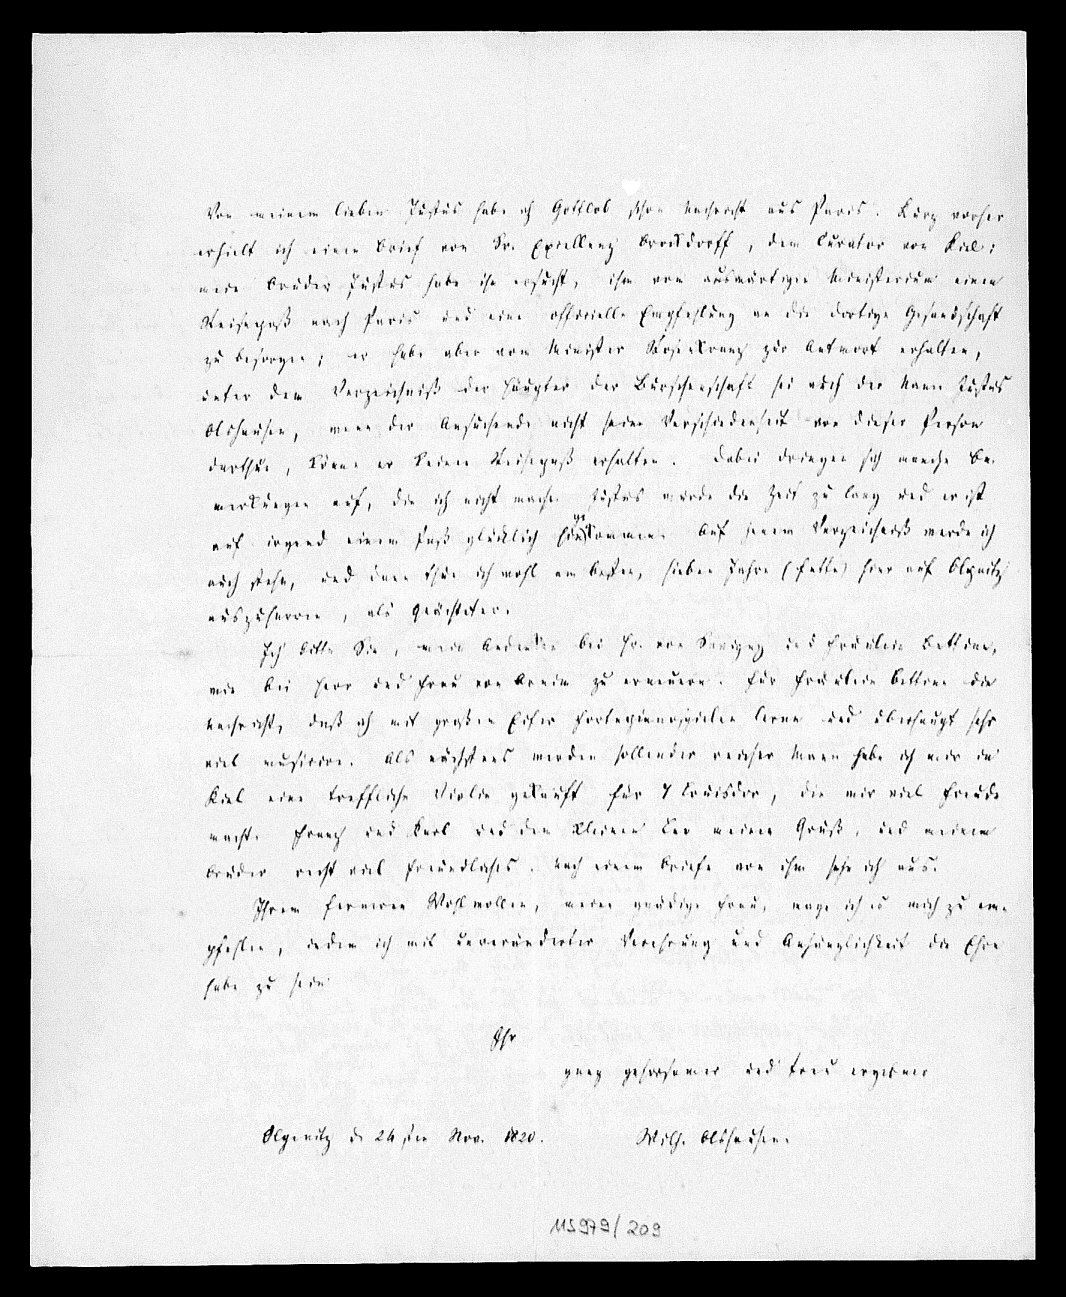 Von meinem lieben Justus habe ich Gottlob schon Nachricht aus Paris. Kurz vorher
erhielt ich einen Brief von Sr. Excellenz Brockdorff, dem Curator von Kiel;
mein Bruder Justus habe ihn ersucht, ihm vom auswärtigen Ministerium einen
Reisepaß nach Paris und eine officielle Empfehlung an die dortige Gesandschaft
zu besorgen; er habe aber vom Minister Rosenkranz zur Antwort erhalten,
unter dem Verzeichniß der Häupter der Burschenschaft sei auch der Name Justus
Olshausen, wenn der Ansuchende nicht seine Verschiedenheit von dieser Person
darthue, könne er keinen Reisepaß erhalten. Dabei dringen sich manche Be-
merkungen auf, die ich nicht mache. Justus wurde die Zeit zu lang und er ist
auf irgend einem Paß glücklich hingekommen. Auf jenem Verzeichniß werde ich
auch stehn, und dann thue ich wohl am besten, sieben Jahre (fette) hier auf Olgenitz
auszuharren, als Geächteter.
Ich bitte Sie, mein Andenken bei Hr. von Savigny und Fräulein Bettine,
wie bei Herr und Frau von Arnim zu erneuern. Für Fräulein Bettine die
Nachricht, daß ich mit großem Eifer Fortepianospielen lerne und überhaupt sehr
viel musicire. Als nächstens werden sollender reicher Mann habe ich mir in
Kiel eine treffliche Violine gekauft für 7 Louisdor, die mir viel Freude
macht. Franz und Karl und dem kleinen Leo meinen Gruß, und meinem
Bruder recht viel Freundliches. Nach einem Briefe von ihm sehe ich aus.
Ihrem ferneren Wohlwollen, meine gnädige Frau, wage ich es mich zu em-
pfehlen, indem ich mit unveränderter Verehrung und Anhänglichkeit die Ehre
habe zu sein
Ihr
ganz gehorsamer und treu ergebner
Olgenitz d. 24sten Nov. 1820. Wilh. Olshausen.
MS979/209